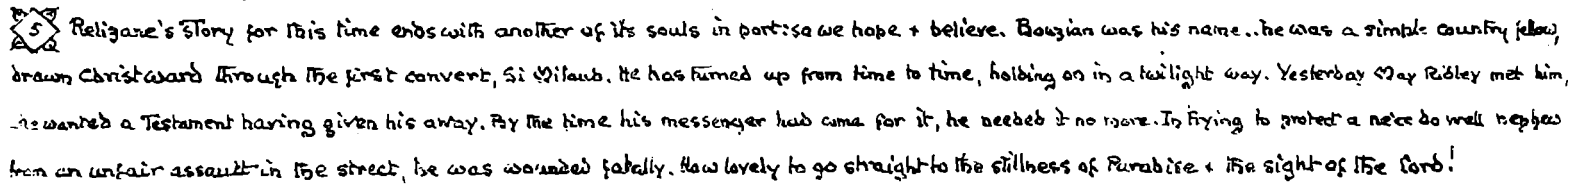 5 Relizane's story for this time ends with another of its souls in port: so we hope + believe. Bouzian was his name.. he was a simple country fellow,
drawn Christward through the first convert, Si Miloub. He has turned up from time to time, holding on in a twilight way. Yesterday May Ridley met him,
he wanted a Testament having given his away. By the time his messenger had come for it, he needed it no more. In trying to protect a ne'er do well nephew
from an unfair assault in the street, he was wounded fatally. How lovely to go straight to the stillness of Paradise + the sight of the Lord!